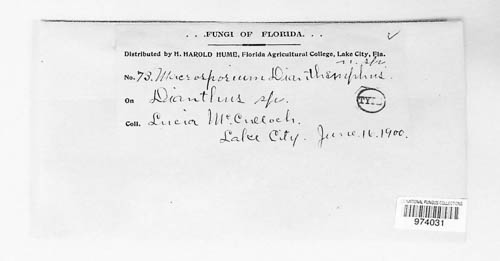 . . .FUNGI OF FLORIDA. . . .
Distributed by H. HAROLD HUME, Florida Agricultural College, Lake City, Fla.
n. sp.
No. 73. Macrosporium
On Dianthus sp.
TYPE
Coll. Lucia McCulloch.
Lake City. June 16. 1900.
US NATIONAL FUNGUS COLLECTIONS
974031